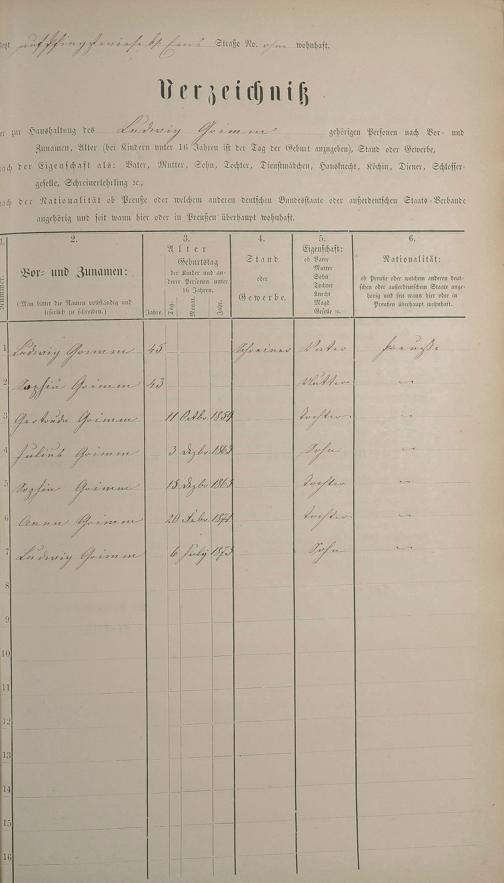 auf Pfingstwiese b/ Ems Straße No. ohne wohnhaft.
Verzeichniß
er zur Haushaltung des Ludwig Grimm gehörigen Personen nach Vor- und
Zunamen, Alter (bei Kindern unter 16 Jahren ist der Tag der Geburt anzugeben), Stand oder Gewerbe,
nach der Eigenschaft als: Vater, Mutter, Sohn, Tochter, Dienstmädchen, Hausknecht, Köchin, Diener, Schlosser-
geselle, Schreinerlehrling ꝛc.,
nach der Nationalität ob Preuße oder welchem anderen deutschen Bundesstaate oder außerdeutschen Staats-Verbande
angehörig und seit wann hier oder in Preußen überhaupt wohnhaft.
1. 2. 3. 4. 5. 6.
Nummer.
Vor- und Zunamen:
(Man bittet die Namen vollständig und
leserlich zu schreiben.)
Alter
Jahre.
Geburtstag
der Kinder und an-
derer Personen unter
16 Jahren.
Tag. Monat. Jahr.
Stand
oder
Gewerbe.
Eigenschaft:
ob Vater
Mutter
Sohn
Tochter
Knecht
Magd
Geselle ꝛc.
Nationalität:
ob Preuße oder welchem anderen deut-
schen oder außerdeutschen Staate ange-
hörig und seit wann hier oder in
Preußen überhaupt wohnhaft.
1 Ludwig Grimm 45 Schreiner Vater Preuße
2 Sophia Grimm 43 Mutter "
3 Gertrude Grimm 11 Octbr 1859 Tochter "
4 Julius Grimm 3 Dezbr 1863 Sohn "
5 Sophia Grimm 18 Dezbr Tochter "
6 Anna Grimm 20 Febr 1871 Tochter "
7 Ludwig Grimm 6 July 1873 Sohn "
8
9
10
11
12
13
14
15
16